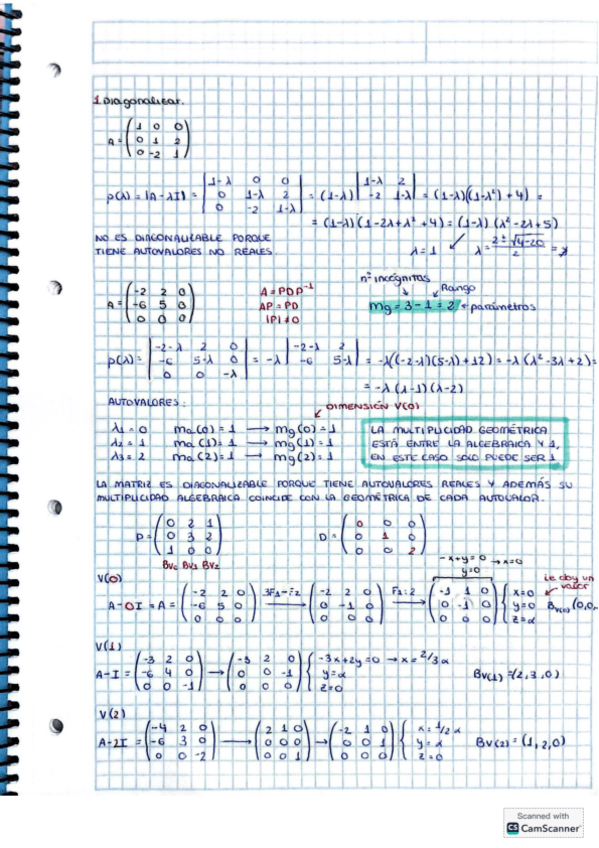 1 Diagonalizar.
A = (1 0 0 / 0 1 2 / 0 -2 1)
p(λ) = |A-λI| = |1-λ 0 0 / 0 1-λ 2 / 0 -2 1-λ| = (1-λ) |1-λ 2 / -2 1-λ| = (1-λ)((1-λ²)+4) =
= (1-λ)(1-2λ+λ²+4) = (1-λ)(λ²-2λ+5)
NO ES DIAGONALIZABLE PORQUE
TIENE AUTOVALORES NO REALES.
λ=1 λ = (2±√4-20)/2 =
nº incógnitas
Rango
A = (-2 2 0 / -6 5 0 / 0 0 0) A = PDP⁻¹ mg = 3-1 = 2 ← parámetros
AP = PD
|P| ≠ 0
p(λ) = |-2-λ 2 0 / -6 5-λ 0 / 0 0 -λ| = -λ |-2-λ 2 / -6 5-λ| = -λ((-2-λ)(5-λ)+12) = -λ(λ²-3λ+2) =
= -λ(λ-1)(λ-2)
AUTOVALORES:
DIMENSIÓN V(0)
λ₁ = 0 ma(0)=1 → mg(0)=1
λ₂ = 1 ma(1)=1 → mg(1)=1
λ₃ = 2 ma(2)=1 → mg(2)=1
LA MULTIPLICIDAD GEOMÉTRICA
ESTÁ ENTRE LA ALGEBRAICA Y 1,
EN ESTE CASO SOLO PUEDE SER 1
LA MATRIZ ES DIAGONALIZABLE PORQUE TIENE AUTOVALORES REALES Y ADEMÁS SU
MULTIPLICIDAD ALGEBRAICA COINCIDE CON LA GEOMÉTRICA DE CADA AUTOVALOR.
P = (0 2 1 / 0 3 2 / 1 0 0) D = (0 0 0 / 0 1 0 / 0 0 2)
Bv₀ Bv₁ Bv₂
-x+y=0 → x=0
y=0
le doy un
valor
V(0)
A-0I = A = (-2 2 0 / -6 5 0 / 0 0 0) 3F₁-F₂ → (-2 2 0 / 0 -1 0 / 0 0 0) F₁:2 → (-1 1 0 / 0 -1 0 / 0 0 0) { x=0 y=0 z=α Bv(0) (0,0,
V(1)
A-I = (-3 2 0 / -6 4 0 / 0 0 -1) → (-3 2 0 / 0 0 -1 / 0 0 0) { -3x+2y=0 → x=2/3α y=α z=0 Bv(1) = (2,3,0)
V(2)
A-2I = (-4 2 0 / -6 3 0 / 0 0 -2) → (2 1 0 / 0 0 0 / 0 0 1) → (-2 1 0 / 0 0 1 / 0 0 0) { x=1/2α y=α z=0 Bv(2) = (1,2,0)
Scanned with
CS CamScanner